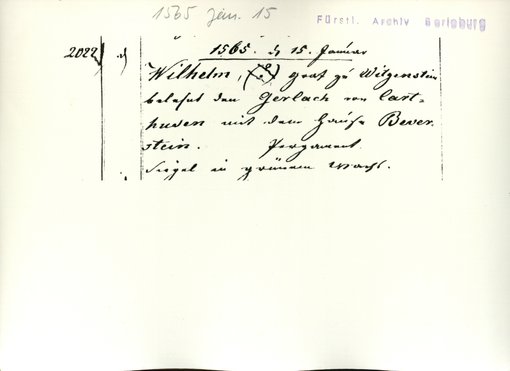 1565 Jan. 15
Fürstl. Archiv Berleburg
2022 d)
1565. d 15. Januar
Wilhelm, Graf zu Witgenstein
belehnt den Gerlach von Cart=
husen mit dem Hause Bever
stein. Pergament
Siegel in grünem Wachs.